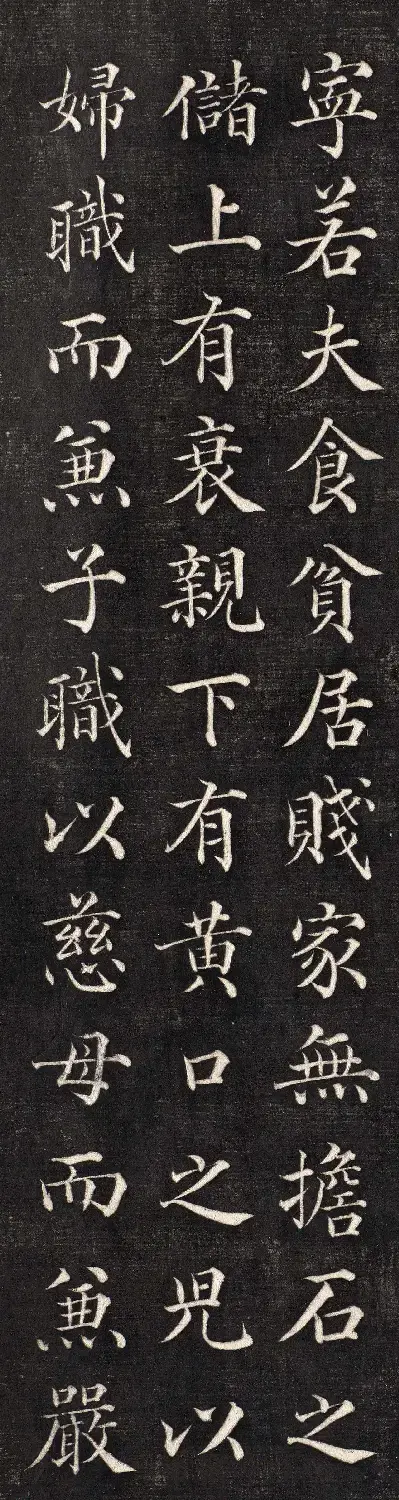 寧若夫食貧居賤家無擔石之
儲上有衰親下有黄口之児以
婦職而兼子職以慈母而兼嚴